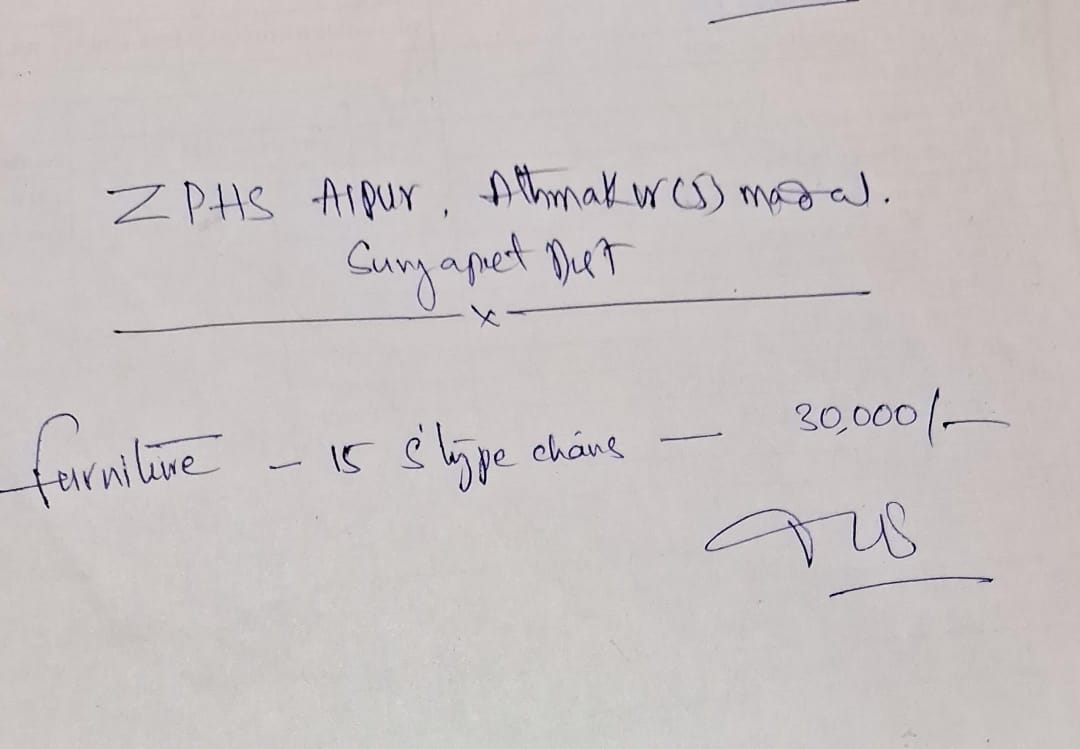 ZPHS Aipur, Athmakur(s) madal.
Suryapet Dist
x
furniture - 15 S type chairs - 30,000/-